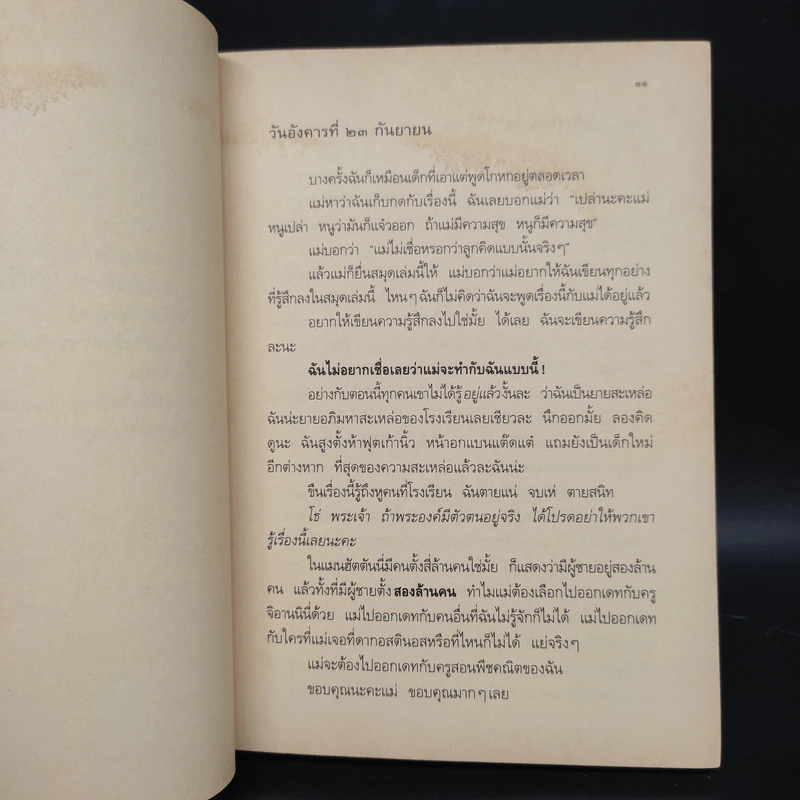 ๑๑
วันอังคารที่ ๒๓ กันยายน
บางครั้งฉันก็เหมือนเด็กที่เอาแต่พูดโกหกอยู่ตลอดเวลา
แม่หาว่าฉันเก็บกดกับเรื่องนี้ ฉันเลยบอกแม่ว่า “เปล่านะคะแม่
หนูเปล่า หนูว่ามันก็แจ๋วออก ถ้าแม่มีความสุข หนูก็มีความสุข”
แม่บอกว่า “แม่ไม่เชื่อหรอกว่าลูกคิดแบบนั้นจริงๆ”
แล้วแม่ก็ยื่นสมุดเล่มนี้ให้ แม่บอกว่าแม่อยากให้ฉันเขียนทุกอย่าง
ที่รู้สึกลงในสมุดเล่มนี้ ไหนๆ ฉันก็ไม่คิดว่าฉันจะพูดเรื่องนี้กับแม่ได้อยู่แล้ว
อยากให้เขียนความรู้สึกลงไปใช่มั้ย ได้เลย ฉันจะเขียนความรู้สึก
ละนะ
ฉันไม่อยากเชื่อเลยว่าแม่จะทำกับฉันแบบนี้!
อย่างกับตอนนี้ทุกคนเขาไม่ได้รู้อยู่แล้วงั้นละ ว่าฉันเป็นยายสะเหล่อ
ฉันน่ะยายอภิมหาสะเหล่อของโรงเรียนเลยเชียวละ นึกออกมั้ย ลองคิด
ดูนะ ฉันสูงตั้งห้าฟุตเก้านิ้ว หน้าอกแบนแต๊ดแต๋ แถมยังเป็นเด็กใหม่
อีกต่างหาก ที่สุดของความสะเหล่อแล้วละฉันน่ะ
ขืนเรื่องนี้รู้ถึงหูคนที่โรงเรียน ฉันตายแน่ จบเห่ ตายสนิท
โธ่ พระเจ้า ถ้าพระองค์มีตัวตนอยู่จริง ได้โปรดอย่าให้พวกเขา
รู้เรื่องนี้เลยนะคะ
ในแมนฮัตตันนี่มีคนตั้งสี่ล้านคนใช่มั้ย ก็แสดงว่ามีผู้ชายอยู่สองล้าน
คน แล้วทั้งที่มีผู้ชายตั้งสองล้านคน ทำไมแม่ต้องเลือกไปออกเดทกับครู
จิอานนินีด้วย แม่ไปออกเดทกับคนอื่นที่ฉันไม่รู้จักก็ไม่ได้ แม่ไปออกเดท
กับใครที่แม่เจอที่ดากอสตินอสหรือที่ไหนก็ไม่ได้ แย่จริงๆ
แม่จะต้องไปออกเดทกับครูสอนพีชคณิตของฉัน
ขอบคุณนะคะแม่ ขอบคุณมากๆ เลย